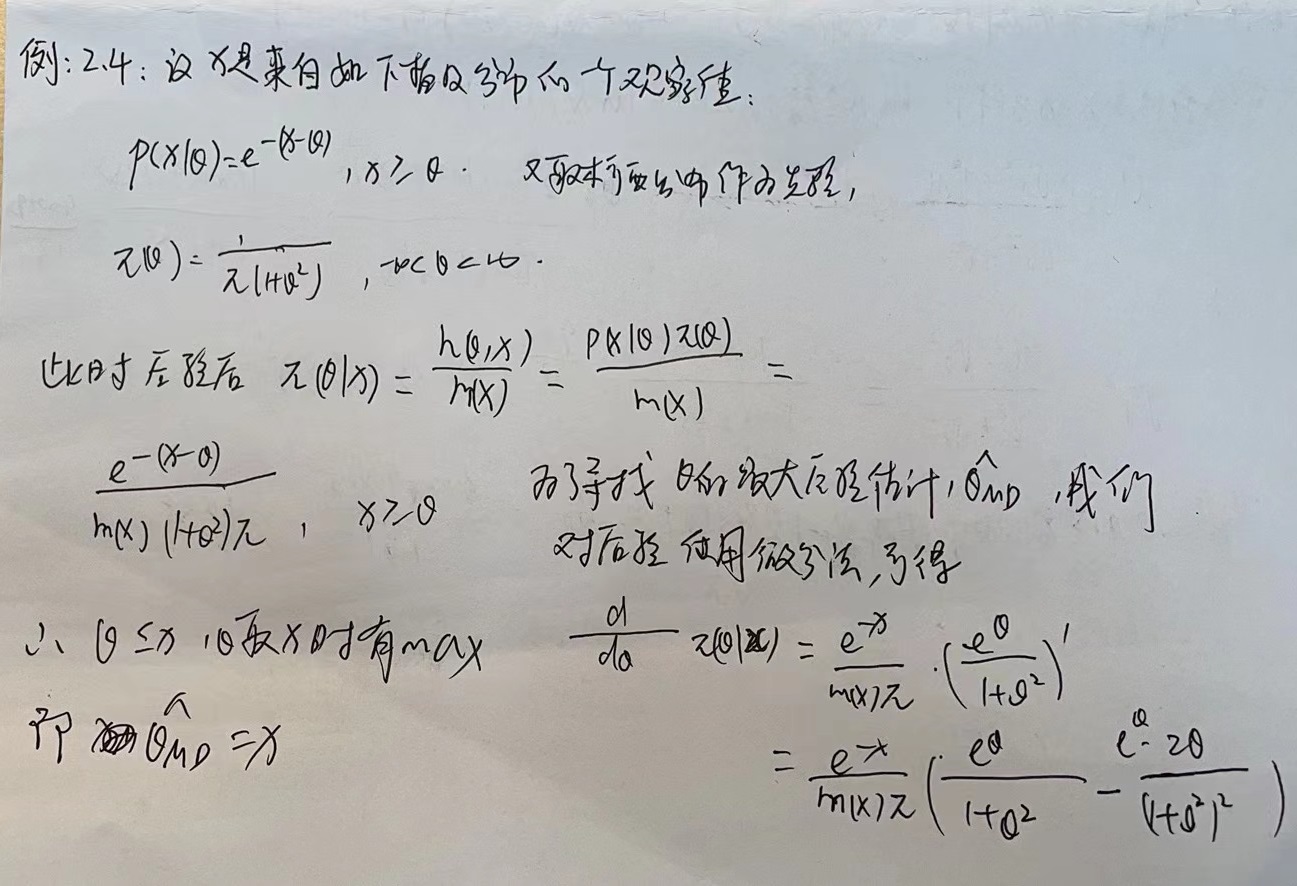 例:2.4:设x是来自如下指数分布的一个观察值:
p(x|θ)=e^{-(x-θ)}, x≥θ. 又取柯西分布作为先验,
π(θ)=\frac{1}{π(1+θ^2)}, -∞<θ<+∞.
此时后验后 π(θ|x)=\frac{h(θ,x)}{m(x)}=\frac{p(x|θ)π(θ)}{m(x)}=
\frac{e^{-(x-θ)}}{m(x)(1+θ^2)π}, x≥θ 为了寻找θ的最大后验估计, \hat{θ}_{MD},我们
对后验使用微分法,可得
∴ θ≤x,θ取x时有max \frac{d}{dθ}π(θ|x)=\frac{e^{-x}}{m(x)π}·(\frac{e^θ}{1+θ^2})'
即 \hat{θ}_{MD}=x
=\frac{e^{-x}}{m(x)π}(\frac{e^θ}{1+θ^2}-\frac{e^θ·2θ}{(1+θ^2)^2})